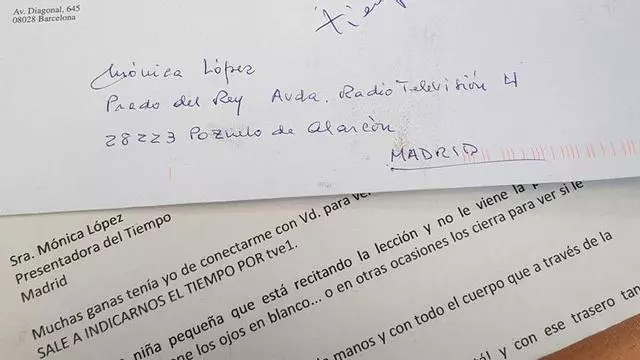 Av. Diagonal, 645
08028 Barcelona
tiem
Mónica López
Prado del Rey Avda. Radio Televisión 4
28223 Pozuelo de Alarcón
MADRID
Sra. Mónica López
Presentadora del Tiempo
Madrid
Muchas ganas tenía yo de conectarme con Vd. para ver
SALE A INDICARNOS EL TIEMPO POR tve1.
niña pequeña que está reciando la lección y no le viene la
ne los ojos en blanco... o en otras ocasiones los cierra para ver si le
manos y con todo el cuerpo que a través de la
y con ese trasero tan